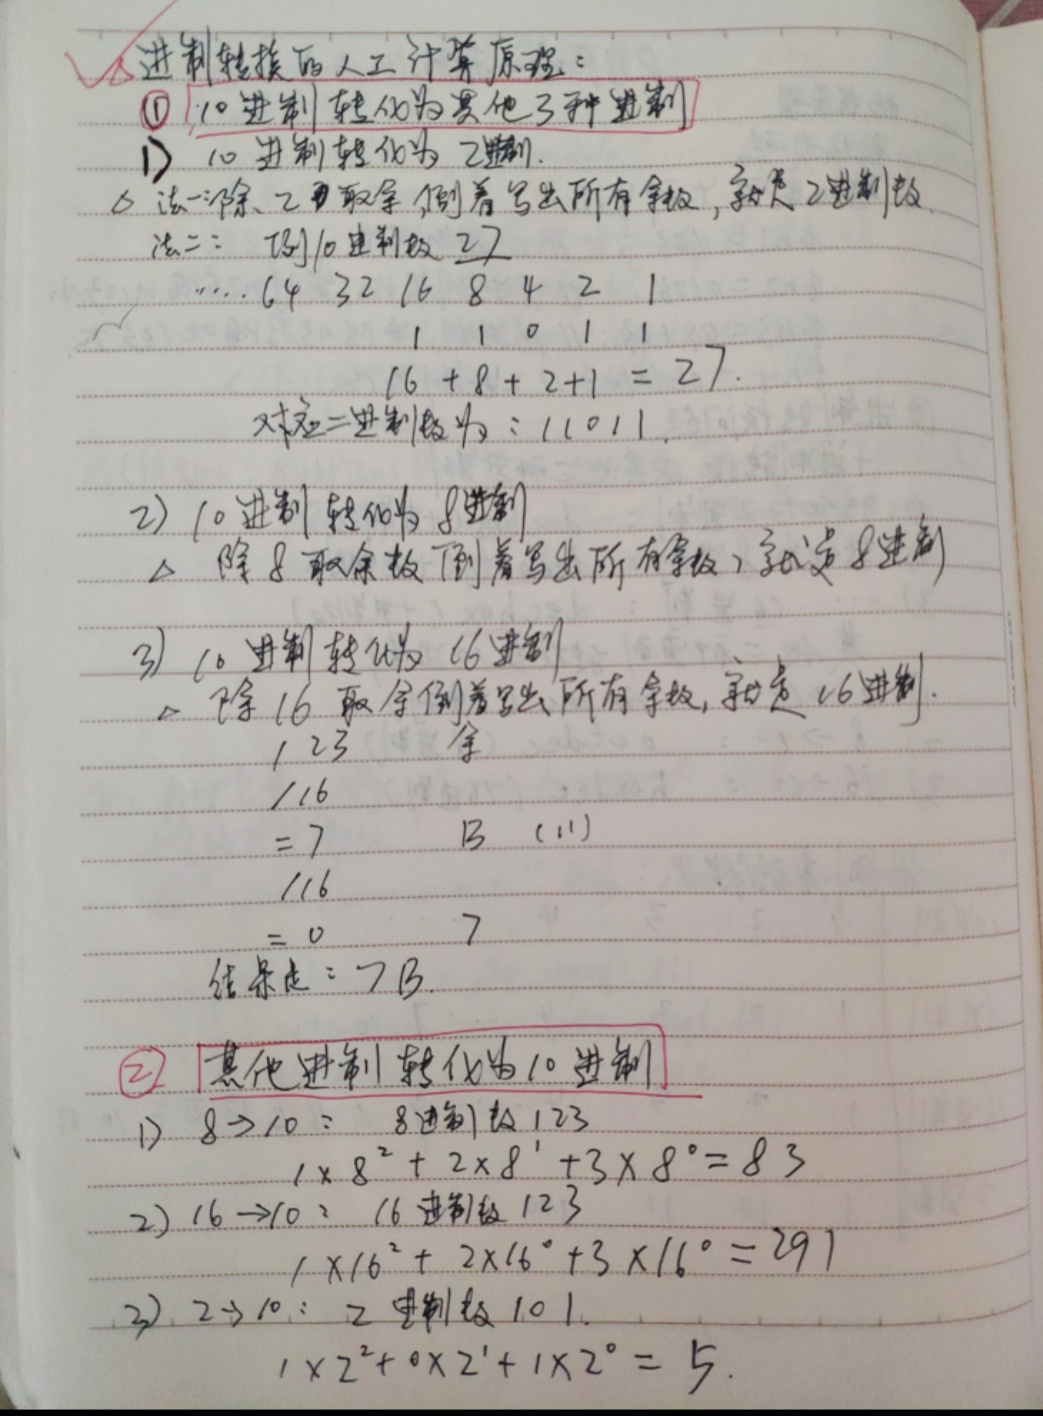 进制转换的人工计算原理:
① 10进制转化为其他3种进制
1) 10进制转化为2进制.
△ 法一:除、2取余,倒着写出所有余数,就是2进制数
法二: 例10进制数 27
..... 64 32 16 8 4 2 1
1 1 0 1 1
16 + 8 + 2+1 = 27.
对应二进制数为:11011.
2) 10进制转化为8进制
△ 除8取余数倒着写出所有余数,就是8进制
3) 10进制转化为16进制
△ 除16取余倒着写出所有余数,就是16进制.
123 余
/16
=7 B (11)
/16
=0 7
结果是:7B.
② 其他进制转化为10进制
1) 8→10: 8进制数123
1×8²+2×8¹+3×8⁰=83
2) 16→10: 16进制数123
1×16²+2×16⁰+3×16⁰=291
3) 2→10: 2进制数101.
1×2²+0×2¹+1×2⁰=5.